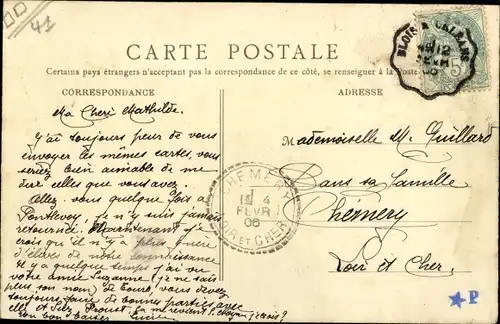 41
CARTE POSTALE
Certains pays étrangers n'acceptant pas la correspondance de ce côté, se renseigner à la Poste
CORRESPONDANCE
ADRESSE
Ma Cheri Mathilde.
J'ai toujours peur de vous
envoyer les mêmes cartes, vous
seriez bien aimable de me
dire celles que vous avez.
Allez vous quelque fois a
Pontlevoy. Je n'y suis jamais
retournée. Maintenant j'e
crois qu'il n'y a plus guere
d'élèves de notre connaissance
Il y a quelque temps j'ai vu
votre amie Suzanne (je ne sais
plus son nom) de Tours, vous devez
toujours faire de bonnes parties avec
elle et
bon baiser Lucie
Mademoiselle M. Guillard
Dans sa famille
Chémery
Loir et Cher.
CHEMERY
4
FEVR
06
LOIR ET CHER
BLOIS A
12
5
P